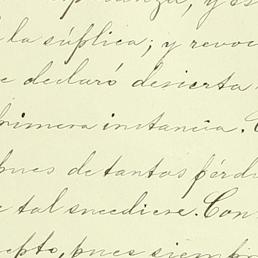 la súplica; y revoc
declaró desierta
primera instancia.
pues de tantas pérdi
tal sucediere. Con
cepto, pues siempr